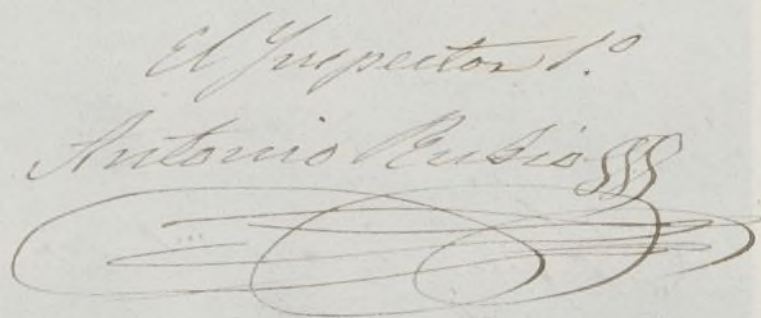 El Ynspector 1.º
Antonio Rubio